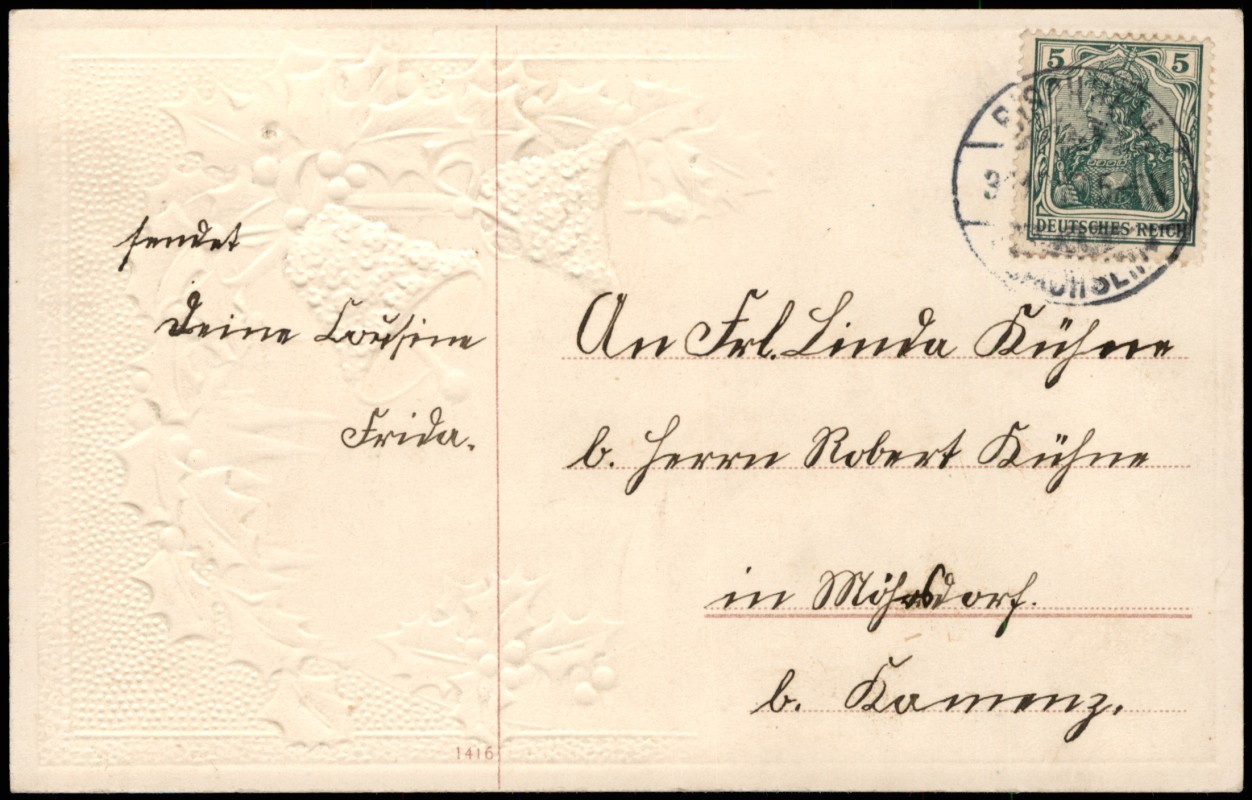 5 5
DEUTSCHES REICH
sendet
Deine Cousine
Frida.
An Frl. Linda Kühne
b. Herrn Robert Kühne
in Möhrsdorf.
b. Kamenz.
1416